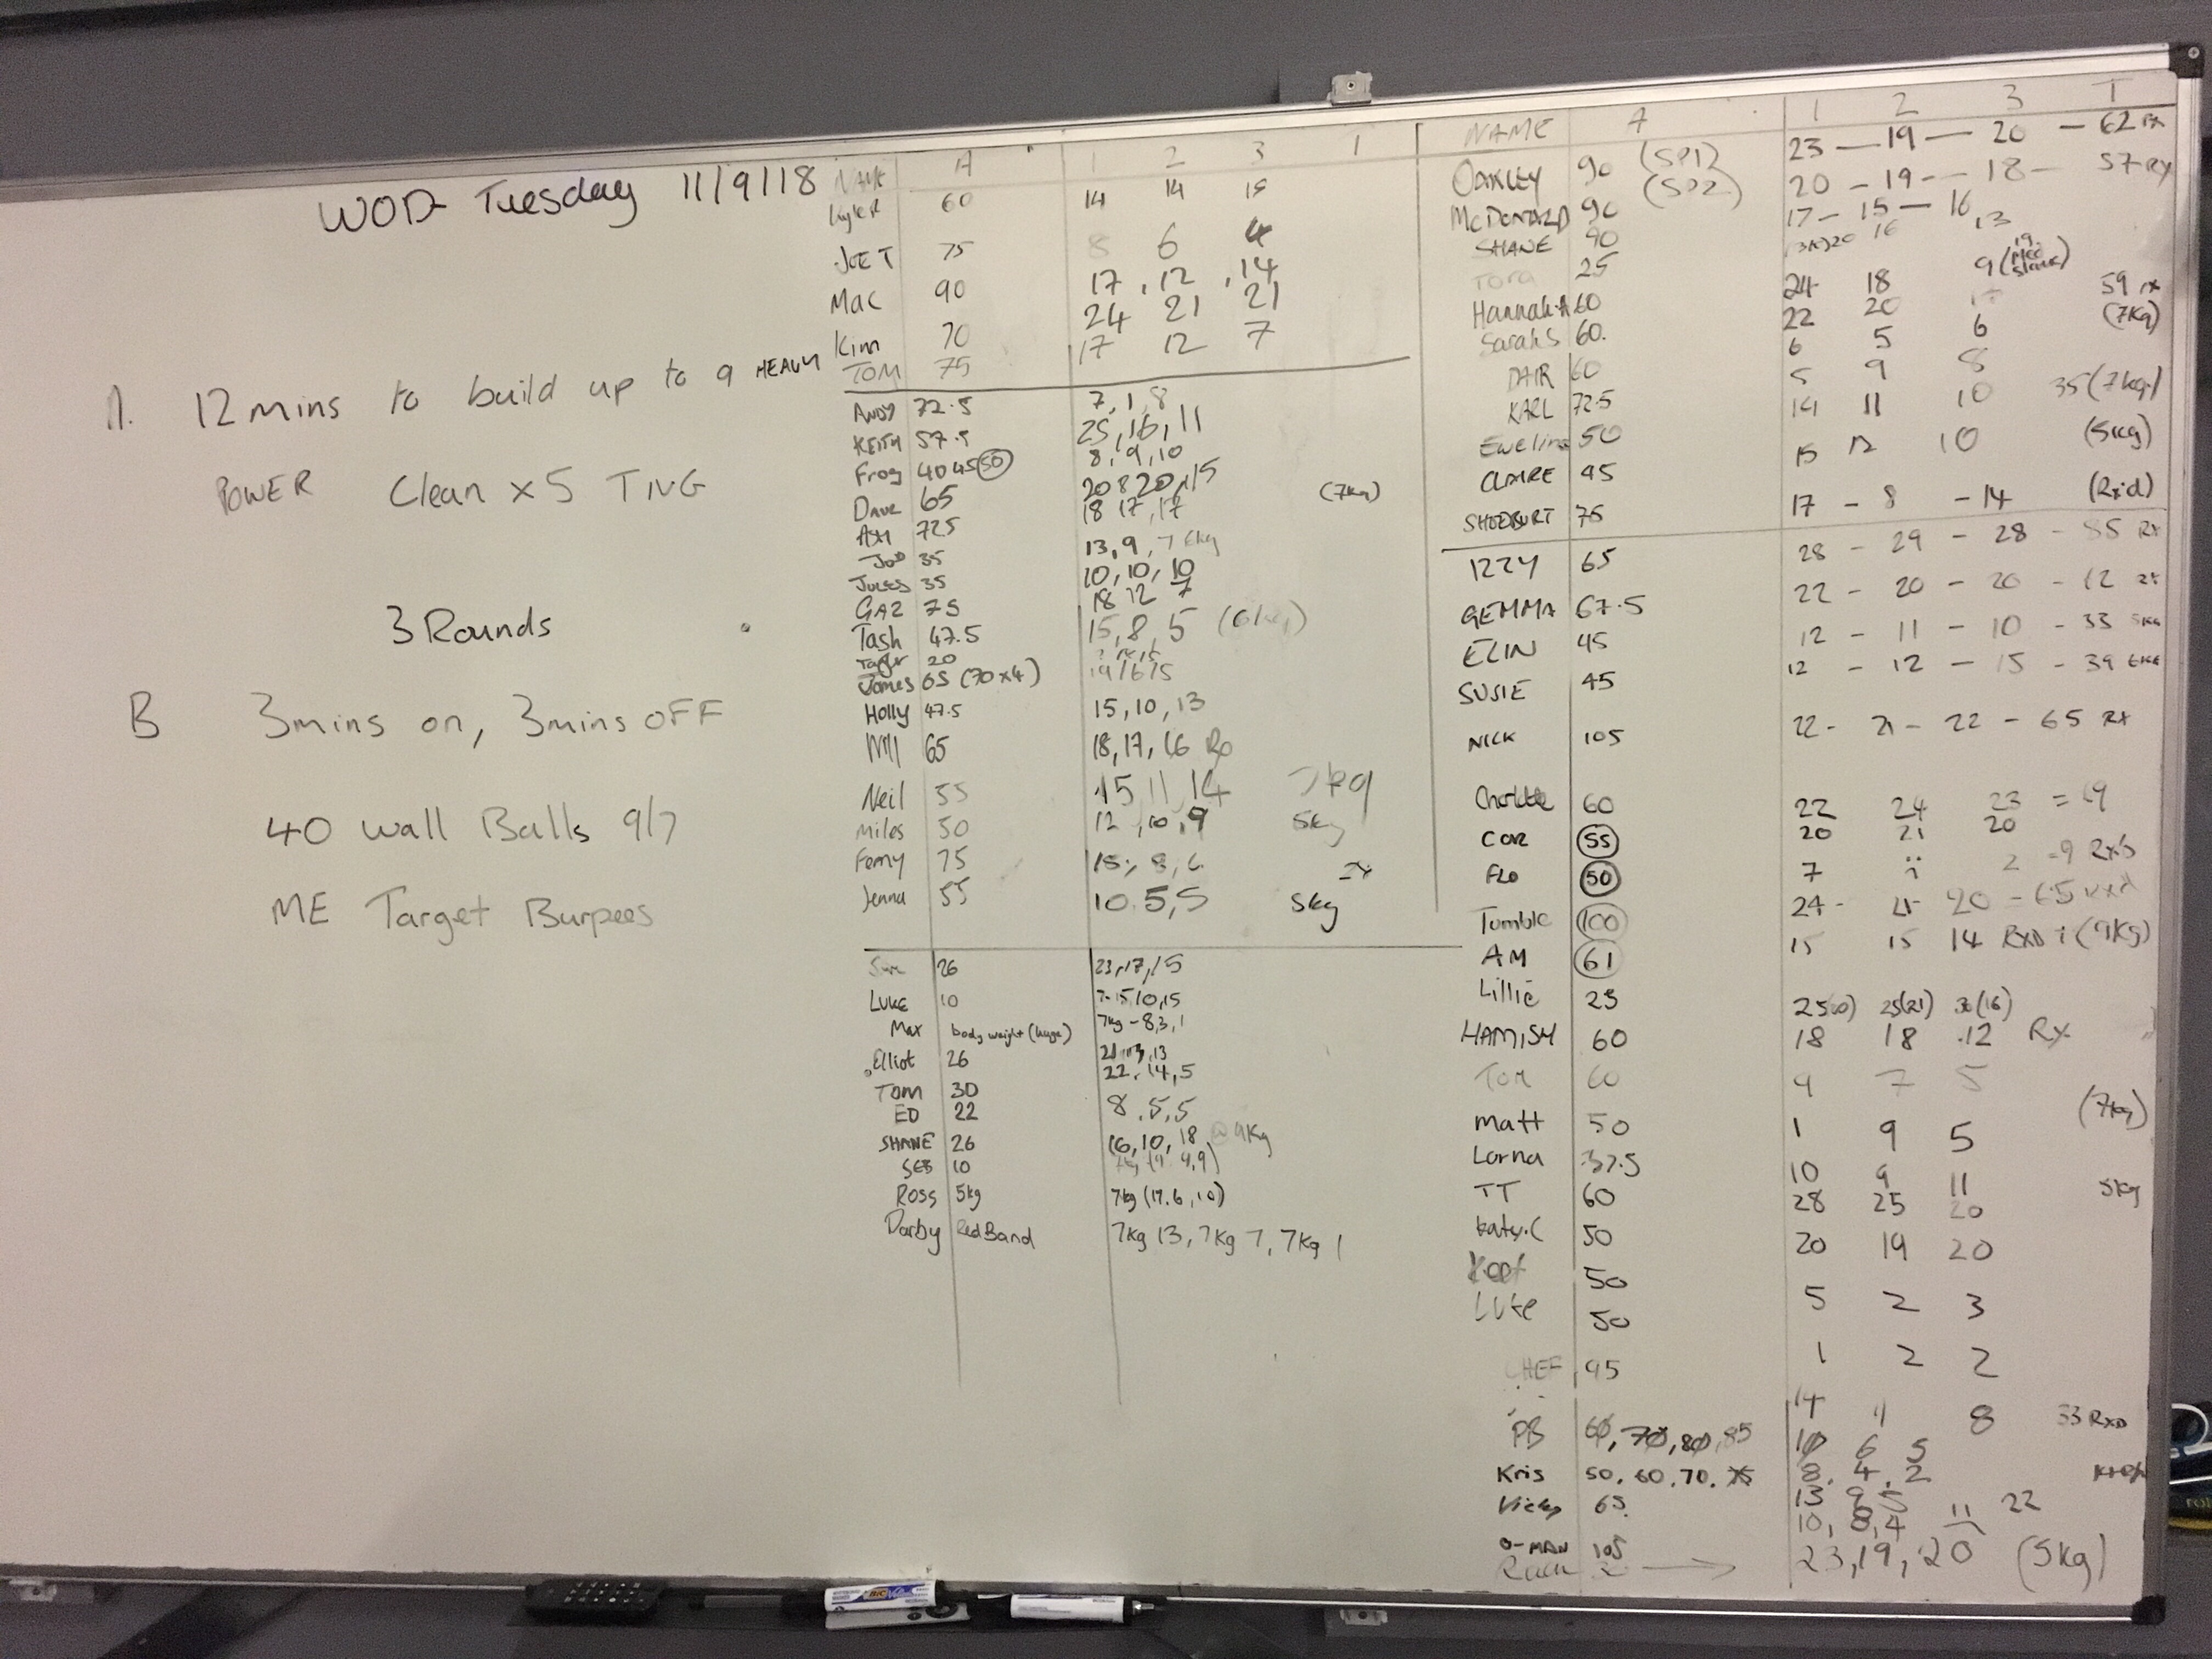 WOD Tuesday 11/9/18
A. 12 mins to build up to a HEAVY
POWER Clean x 5 TNG
3 Rounds
B 3mins on, 3mins OFF
40 Wall Balls 9/7
ME Target Burpees
NAME A 1 2 3 T
60 14 14
JOE T 75 8 6 4
Mac 90 17, 12, 14
Kim 70 24 21 21
TOM 75 17 12 7
ANDY 72.5 7, 1, 8
KEITH 57.5 25, 16, 11
Frog 40 45 50 8, 9, 10
Dave 65 20 8 20, 15
72.5 18 17, 17 (7kg)
35 13, 9, 7 6kg
Jules 35 10, 10, 10
GAZ 75 18 12 7
Tash 47.5 15, 8, 5 (6kg)
20
James 65 (70x4)
Holly 47.5 15, 10, 13
Will 65 18, 17, 16
Neil 55 15 11 14 7kg
Miles 50 12, 10, 9 5kg
75
Jenna 55 10. 5, 5 5kg
26 23, 17, 15
LUKE 10
Max body weight 7kg - 8, 3, 1
Elliot 26
TOM 30 22, 14, 5
ED 22 8, 5, 5
SHANE 26 16, 10, 18 @ 9kg
SEB 10
ROSS 5kg 7kg (17, 6, 10)
Darby Red Band 7kg 13, 7kg 7, 7kg 1
NAME A 1 2 3 T
OAKLEY 90 (SP1) 23 — 19 — 20 — 62 RX
McDONALD 90 (SP2) 20 — 19 — 18 — 57 RX
SHANE 90 17 — 15 — 16
Tora 25 16 13
Hannah.A 60 24 18 9
Sarah S 60. 22 20 59 rx
60 6 5 6 (7kg)
KARL 72.5 5 9 8
Ewelina 50 14 11 10 35 (7kg)
CLAIRE 45 15 12 10 (5kg)
75 17 - 8 - 14 (Rx'd)
IZZY 65 28 - 29 - 28 - 85 RX
GEMMA 67.5 22 - 20 - 20
ELIN 45 12 - 11 - 10 - 33 5KG
SUSIE 45 12 - 12 - 15 - 39 6KG
NICK 105 22 - 21 - 22 - 65 RX
60 22 24 23
COR 55 20 21 20
FLO 50 7 2 -9
Tumble 100 24 21 20
AM 61 15 15 14 RXD (9kg)
Lillie 25
HAMISH 60 18 18 12 RX
Tom 60 9 7 5
Matt 50 1 9 5 (7kg)
Lorna 37.5 10 9 11 5kg
TT 60 28 25 20
Katy.C 50 20 19 20
50 5 2 3
LUKE 50 1 2 2
CHEF 95 14 11 8 33 RXD
PB 60, 70, 80, 85 10 6 5
Kris 50, 60, 70, 75 8. 4. 2
Vicky 65. 13 9 5
O-MAN 105 10, 8, 4 11 22
23, 19, 20 (5kg)